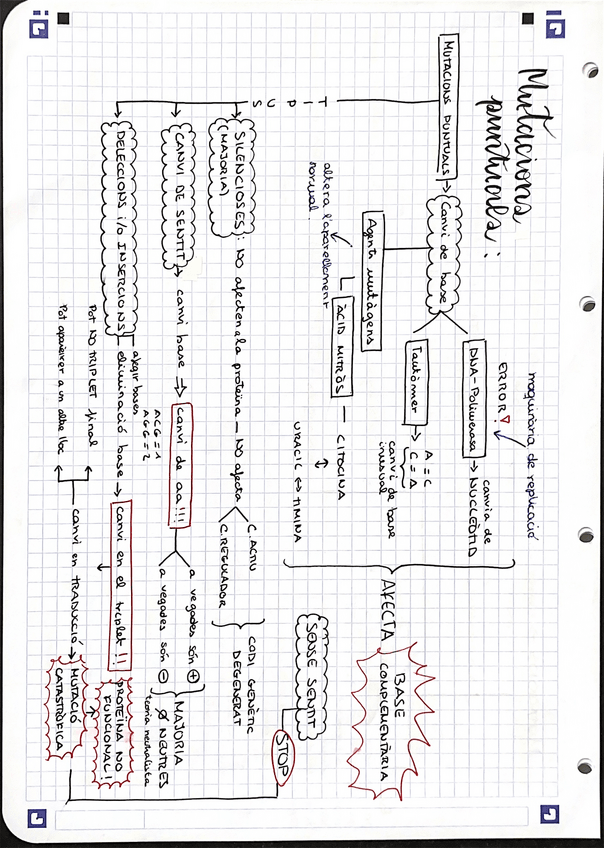 Mutacions
puntuals:
MUTACIONS PUNTUALS
Canvi de base
DNA-Polimerasa
canvia de
NUCLEÒTID
ERROR!
maquinària de replicació
Tautòmer
A = C
C = A
canvi de base
inusual
Agents mutàgens
ÀCID NITRÓS
altera l'aparellament
normal.
CITOCINA
URACIL ↔ TIMINA
AFECTA
BASE
COMPLEMENTÀRIA
TIPUS
SILENCIOSES: NO afecten a la proteïna — NO afecta
(MAJORIA)
C. ACTIU
C. REGULADOR
CODI GENÈTIC
DEGENERAT
SENSE SENTIT
STOP
CANVI DE SENTIT → canvi base → canvi de aa!!!
ACG = 1
AGG = 2
a vegades són +
a vegades són −
MAJORIA
Ø NEUTRES
teoria neutralista
DELECCIONS i/o INSERCIONS
afegir bases
eliminació base → canvi en el triplet!!
PROTEÏNA NO
FUNCIONAL!
Pot NO TRIPLET final
Pot aparèixer a un altre lloc
canvi en TRADUCCIÓ → MUTACIÓ
CATASTRÒFICA